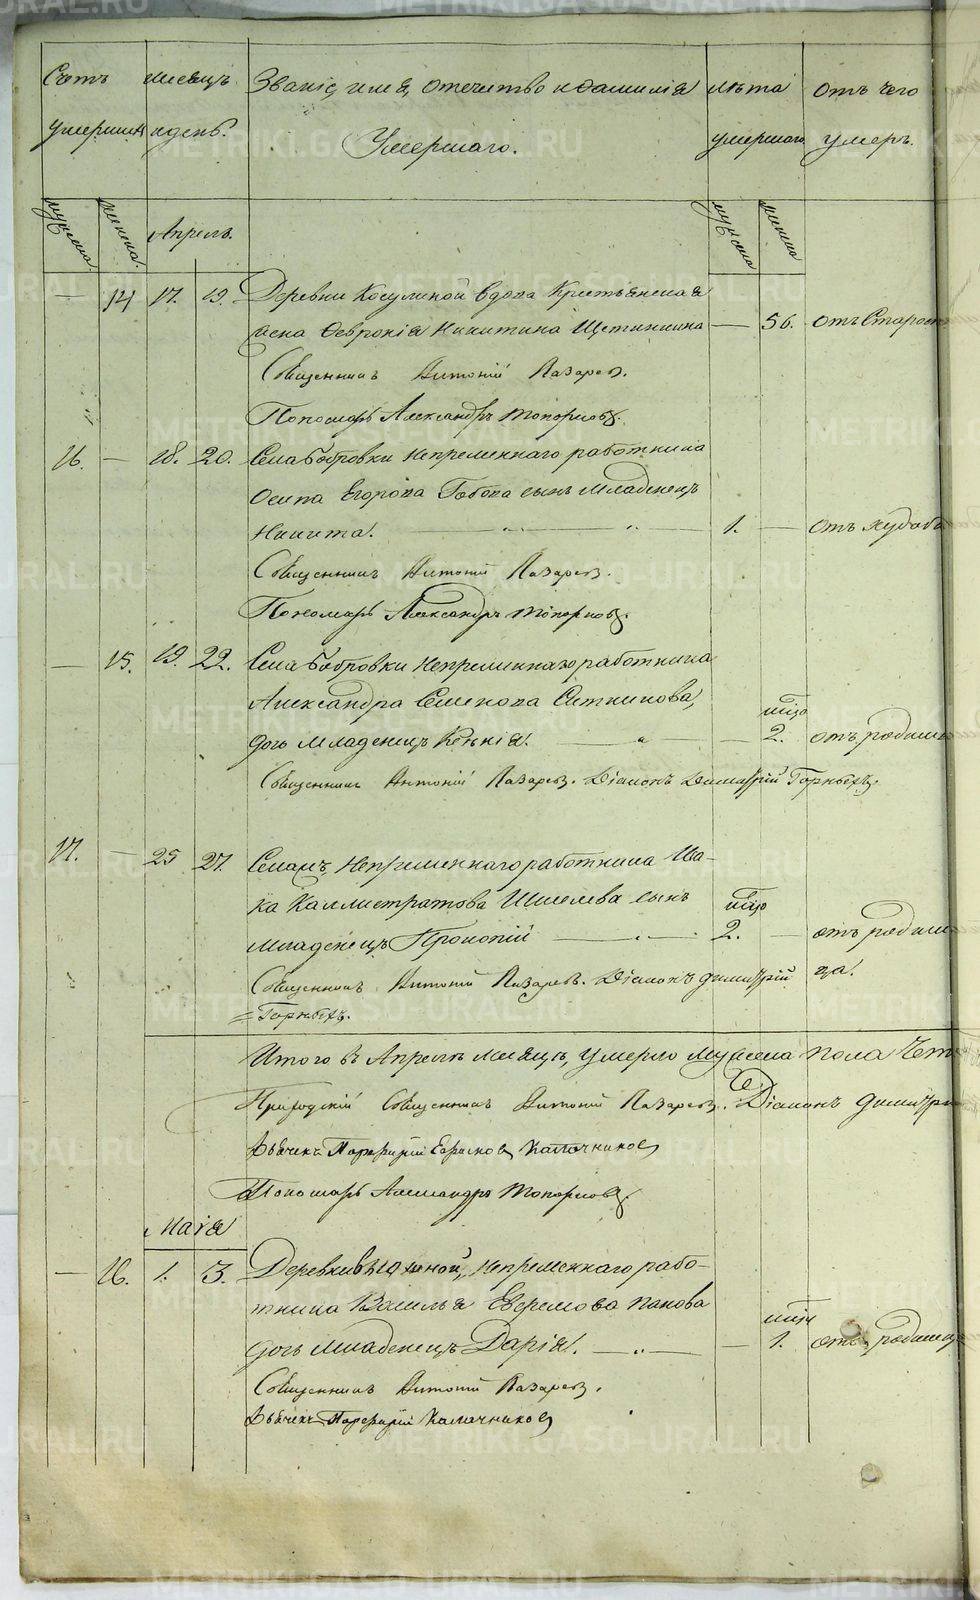 Счетъ умершихъ
Месяцъ и день.
Званіе, имя, отечество и фамилія
Умершаго.
Лѣта умершаго.
Отъ чего умеръ.
мужска женска. Апрель. мужска женска
— 14 17. 19. Деревни Косулиной вдова Крестьянская
жена Февронія Никитина Щетинкина — 56. отъ Старос
Священникъ Антоній Лазарев.
Пономарь Александръ Топорков.
16. — 18. 20. Села Бобровки Непременнаго работника
Осипа Егорова Бобова сынъ младенецъ
Никита. 1. — отъ худоб
Священникъ Антоній Лазарев.
Пономарь Александръ Топорков.
— 15. 19. 22. Села Бобровки Непременнаго работника
Александра Семенова Ситникова,
дочь младенецъ Ксенія. 2. отъ родим
Священникъ Антоній Лазарев. Діаконъ Димитрій Горныхъ.
17. — 25 27. Селамъ, Непременнаго работника Ива-
на Каллистратова Шмелева сынъ
младенецъ Прокопій 2. — отъ родим
ца.
Священникъ Антоній Лазаревъ. Діаконъ Димитрій
Горныхъ.
Итого въ Апрелѣ месяцѣ, умерло мужеска пола Чет
Приходскій Священникъ Антоній Лазарев. Діаконъ Димитрі
Дьячекъ Парфирій Калачников
Пономарь Александръ Топорков.
Маія
— 16. 1. 3. Деревни Непременнаго рабо-
тника Василья Ефремова Панова
дочь младенецъ Дарія. — 1. отъ родимц
Священникъ Антоній Лазарев.
Дьячекъ Парфирій Калачников
METRIKI.GASO-URAL.RU